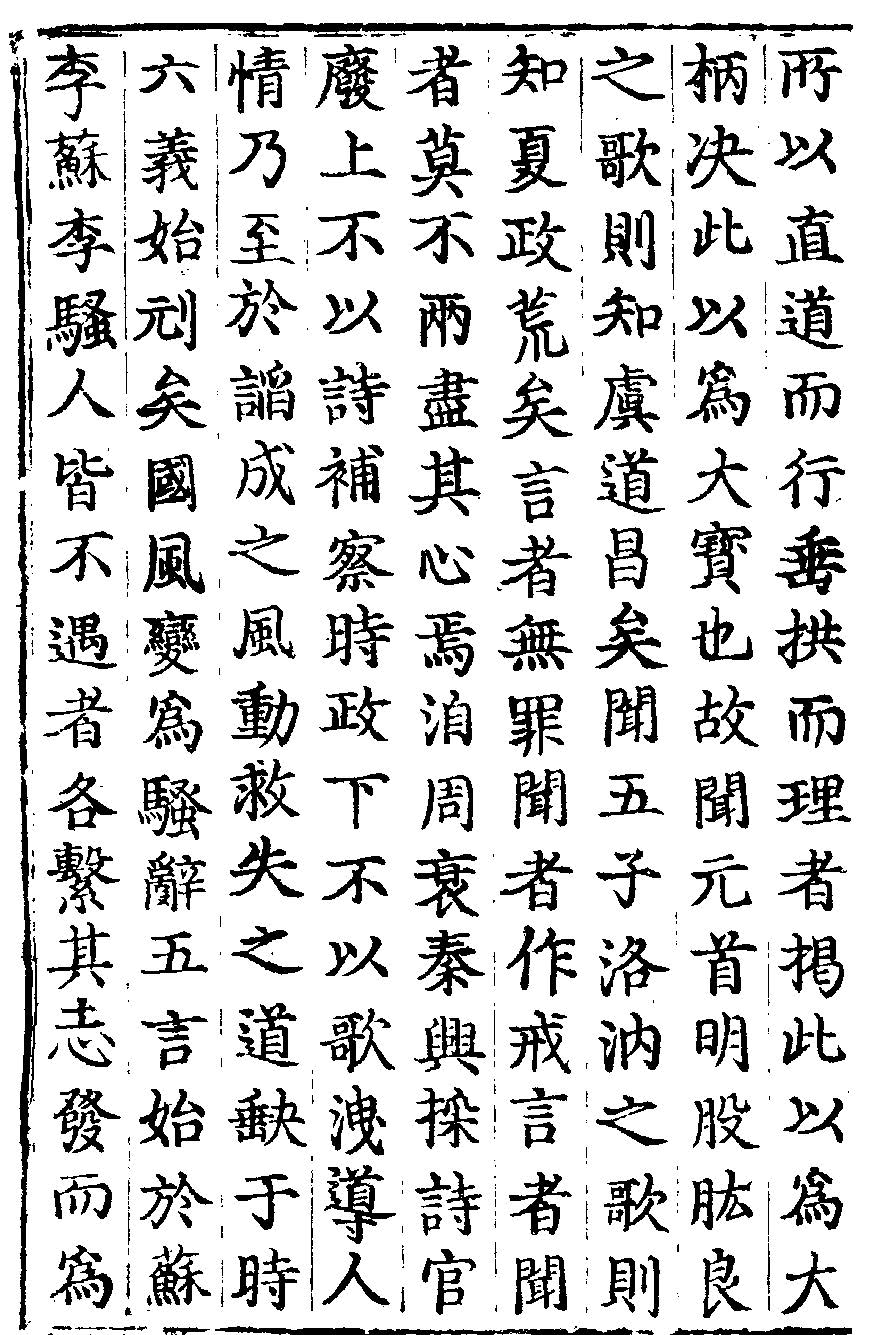 所以直道而行垂拱而理者揭此以爲大
柄决此以爲大寳也故聞元首明股肱良
之歌則知虞道昌矣聞五子洛汭之歌則
知夏政荒矣言者無罪聞者作戒言者聞
者莫不兩盡其心焉洎周衰秦興採詩官
廢上不以詩補察時政下不以歌洩導人
情乃至於謟成之風動救失之道缺于時
六義始刓矣國風變爲騷辭五言始於蘇
李蘇李騷人皆不遇者各繫其志發而爲